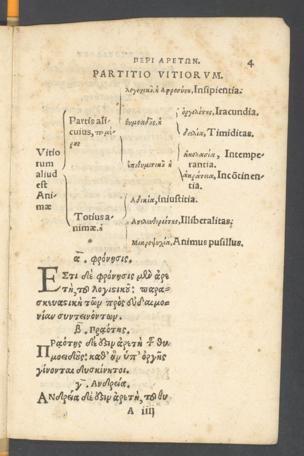 ΠΕΡΙ ΑΡΕΤΩΝ. 4
PARTITIO VITIORVM.
Λογισικοῦ ἡ Ἀφροσύνη, Insipientia.
Partis ali- cuius, τοῦ μέ- ρος
θυμοειδοῦς ἡ
ὀργιλότης, Iracundia.
δειλία, Timiditas.
ἐπιθυμητικοῦ ἡ
ἀκολασία, Intempe-
rantia.
ἀκράτεια, Incōtinen-
tia.
Vitio
rum
aliud
est
Ani-
mæ
Totius a-
nimæ ἡ
Ἀδικία, iniustitia.
Ἀνελευθεριότης, Illiberalitas;
Μικροψυχία, Animus pusillus.
α. φρόνησις.
ΕΣΤΙ δὲ φρόνησις μὲν ἀρε
τὴ τοῦ λογιστικοῦ· παρα-
σκευαστικὴ τῶν πρὸς εὐδαιμο-
νίαν συντεινόντων.
β. πραότης.
Πραότης δέ ἐστιν ἀρετὴ τοῦ θυ-
μοειδοῦς· καθ' ἣν ὑπ' ὀργῆς
γίνονται δυσκίνητοι.
γ. Ἀνδρεία.
Ανδρεία δέ ἐστιν ἀρετὴ, τοῦ θυ
A iiij